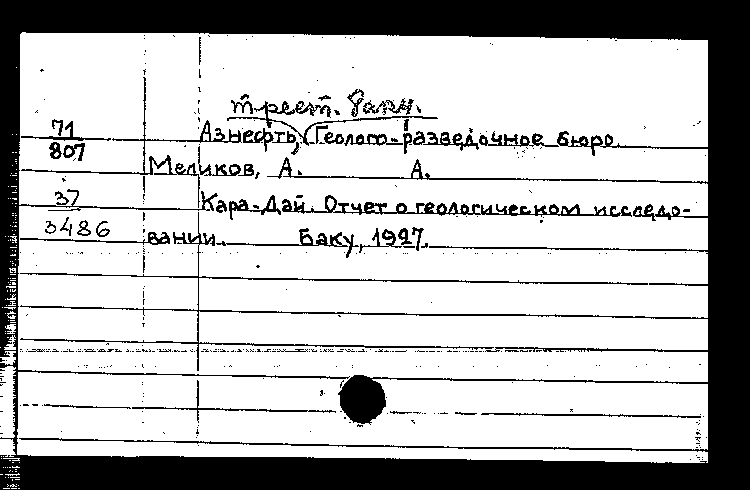 трест. Баку.
71 Азнефть, Геолого-разведочное бюро.
807
Меликов, А. А.
37 Кара-Дай. Отчет о геологическом исследо-
3486 вании. Баку, 1927.